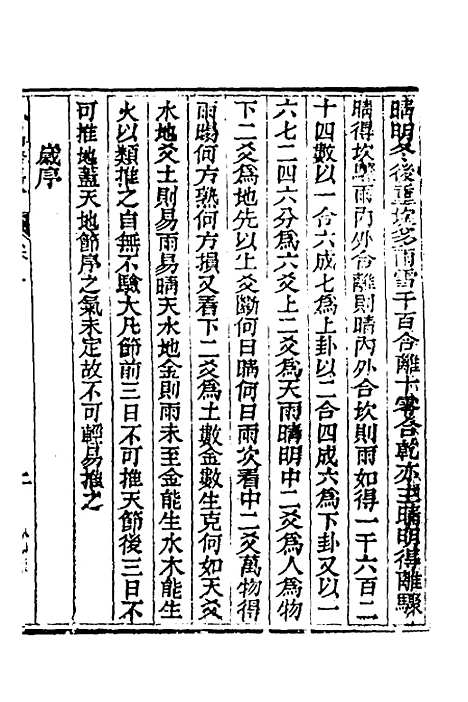 晴明冬後重坎多雨雪千百合離十零合乾亦主晴明得離驟
晴得坎驟雨內外合離則晴內外合坎則雨如得一千六百二
十四數以一合六成七為上卦以二合四成六為下卦又以一
六七二四六分為六爻上二爻為天雨晴明中二爻為人為物
下二爻為地先以上爻斷何日晹何日雨次看中二爻萬物得
雨晹何方熟何方損又看下二爻為土數金數生克何如天爻
水地爻土則易雨易晴天水地金則雨未至金能生水木能生
火以類推之自無不驗大凡節前三日不可推天節後三日不
可推地蓋天地節序之氣未定故不可輕易推之
歲序